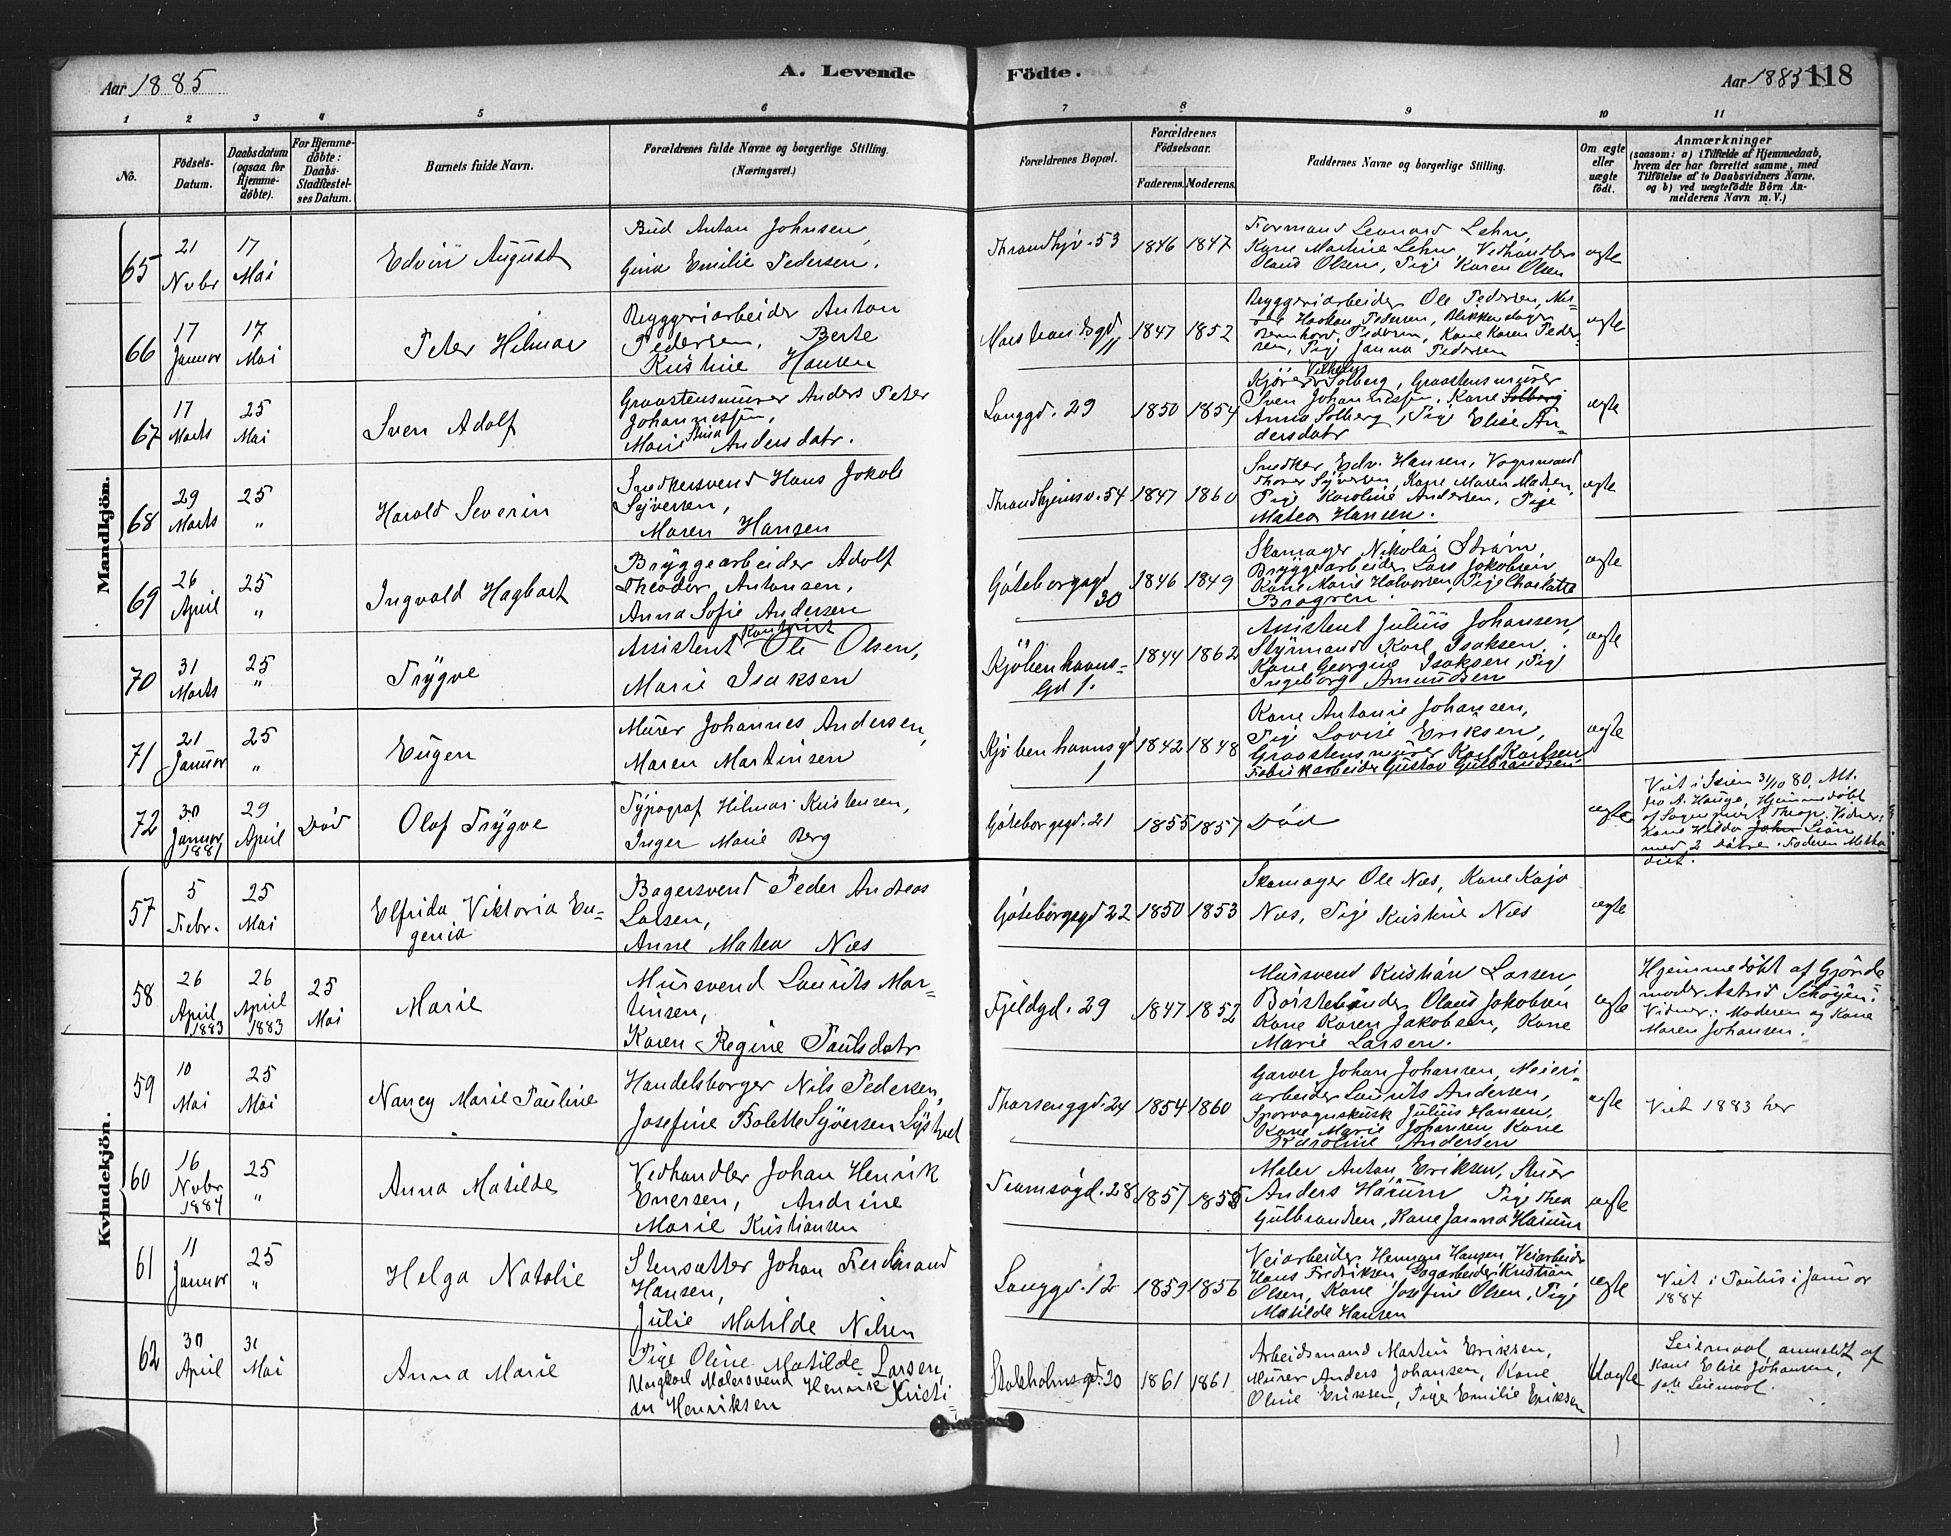 Aar 1885
A. Levende
Födte.
Aar 1885
118
1 2 3 4 5 6 7 8 9 10 11
No.
Födsels-
Datum.
Daabsdatum
(ogsaa for
Hjemme-
döbte).
For Hjemme-
döbte:
Daabs-
Stadfæstel-
ses Datum.
Barnets fulde Navn.
Forældrenes fulde Navne og borgerlige Stilling.
(Næringsvei.)
Forældrenes Bopæl.
Forældrenes
Födselsaar.
Faderens. Moderens.
Faddernes Navne og borgerlige Stilling.
Om ægte
eller
uægte
födt.
Anmærkninger
(saasom: a) i Tilfælde af Hjemmedaab,
hvem der har forrettet samme, med
Tilföielse af to Daabsvidners Navne,
og b) ved uægtefödte Börn An-
melderens Navn m. V.)
Mandkjön.
65
21
Novbr
17
Mai
Edvin August
Bud Anton Johnsen,
Gina Emilie Pedersen.
Throndhjv. 53
1846
1847
Formand Leonard Lehn,
Kone Martine Lehn, Vedhandler
Olaus Olsen, Pige Karen Olsen
ægte
66
17
Januar
17
Mai
Peter Hilmar
Bryggeriarbeider Anton
Pedersen, Berte
Kristine Hansen
Marstrandsgd
11
1847
1852
Bryggeriarbeider Ole Pedersen,
Haakon Pedersen, Blikkenslager
Bernhard Pedersen, Kone Karen Peder-
sen, Pige Janna Pedersen
ægte
67
17
Marts
25
Mai
Sven Adolf
Graastensmurer Anders Peter
Johannessen,
Marie Stina Andersdatr.
Langgd. 29
1850
1854
Kjörer Vilhelm Solberg, Graastensmurer
Sven Johannessen, Kone Solberg
Anna Solberg, Pige Elise An-
dersdatr
ægte
68
29
Marts
25
"
Harald Severin
Snedkersvend Hans Jakob
Syversen,
Maren Hansen
Throndhjemsv. 54
1847
1860
Snedker Edv. Hansen, Vognmand
Thorer Syversen, Kone Maren Madsen,
Pige Karoline Andersen, Pige
Matea Hansen.
ægte
69
26
April
25
"
Ingvald Hagbart
Bryggearbeider Adolf
Theodor Antonsen,
Anna Sofie Andersen
Göteborgsgd
30
1846
1849
Skomager Nikolai Ström,
Bryggearbeider Lars Jakobsen
Kone Maria Halvorsen, Pige Charlotte
Brogren.
ægte
70
31
Marts
25
"
Trygve
Assistent Ole Olsen,
Marie Isaksen
Kjöbenhavns-
gd 1.
1844
1862
Assistent Julius Johansen,
Styrmand Karl Isaksen,
Kone Georgine Isaksen, Pige
Ingeborg Amundsen
ægte
71
21
Januar
25
"
Eugen
Murer Johannes Andersen,
Maren Martinsen
Kjöbenhavnsgd
1
1842
1848
Kone Antonie Johansen,
Pige Lovise Eriksen,
Graastensmurer Karl Karlsen
Fabrikarbeider Gustav Gulbrandsen
ægte
72
30
Januar
1881
29
April
Död
Olaf Trygve
Typograf Hilmar Kristensen,
Inger Marie Berg
Göteborgsgd. 21
1855
1857
Död
ægte
Viet i Skien 31/10 80, Att.
fra A. Hauge, Hjemmedöbt
af Sogneprest Thrap. Vidner:
Kone Hilda John Lian
med 2 Döbte. Faderen Metho-
dist.
Kvindekjön.
57
5
Febr.
25
Mai
Elfrida Viktoria Eu-
genia
Bagersvend Peder Andreas
Larsen,
Anne Matea Næs
Göteborgsgd 22
1850
1853
Skomager Ole Næs, Kone Kaja
Næs, Pige Kristine Næs
ægte
58
26
April
1883
26
April
1883
25
Mai
Marie
Mursvend Laurits Mar-
tinsen,
Karen Regine Paulsdatr
Fjeldgd. 29
1847
1852
Mursvend Kristian Larsen,
Börstebinder Olaus Jakobsen
Kone Karen Jakobsen, Kone
Marie Larsen.
ægte
Hjemmedöbt af Gjorde-
moder Astrid Schöyen.
Vidner: Moderen og Kone
Maren Johansen.
59
10
Mai
25
Mai
Nancy Marie Pauline
Handelsborger Nils Pedersen,
Josefine Bolette Syversen Lystvet
Thorsenggd. 24
1854
1860
Garver Johan Johansen, Meieri-
arbeider Laurits Andersen,
Sporvognskusk Julius Hansen,
Kone Marie Johansen, Kone
Karoline Andersen
ægte
Viet 1883 her
60
16
Novbr
1884
25
"
Anna Matilde
Vedhandler Johan Henrik
Enersen, Andrine
Marie Kristiansen
Tromsögd. 28
1857
1855
Maler Anton Eriksen, Stuer
Anders Harum, Pige Thea
Gulbrandsen, Kone Janna Harum
ægte
61
11
Januar
25
"
Helga Natalie
Stensætter Johan Ferdinand
Hansen,
Julie Matilde Nilsen
Langgd. 12
1859
1856
Veiarbeider Herman Hansen, Veiarbeider
Hans Fredriksen, Sagarbeider Kristian
Olsen, Kone Josefine Olsen, Pige
Matilde Hansen
ægte
Viet i Paulus i Januar
1884
62
30
April
31
Mai
Anna Marie
Pige Oline Matilde Larsen,
Ungkarl Malersvend Henrik Kristi-
an Henriksen
Stokholmsgd. 20
1861
1861
Arbeidsmand Martin Eriksen,
Murer Anders Johansen, Kone
Oline Eriksen, Pige Emilie Eriksen
Uægte
Leiermaal, anmeldt af
Kone Elise Johansen,
Leiermaal.